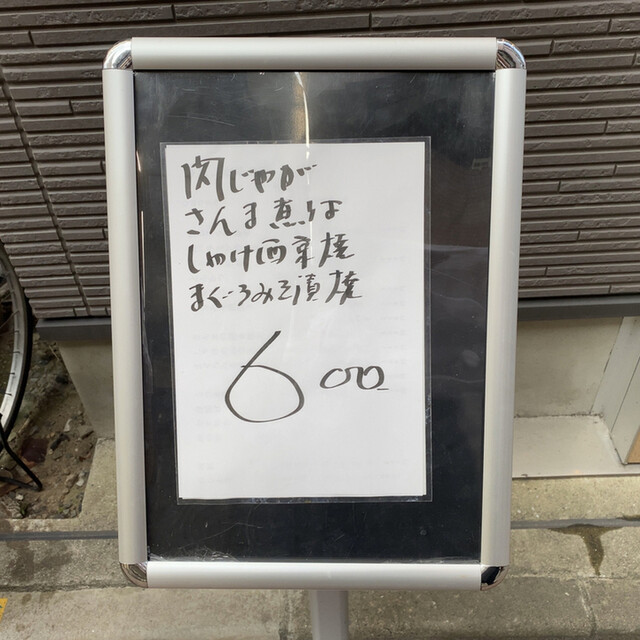 肉じゃが
さんま
しゃけ西京焼
まぐろみそ漬焼
600